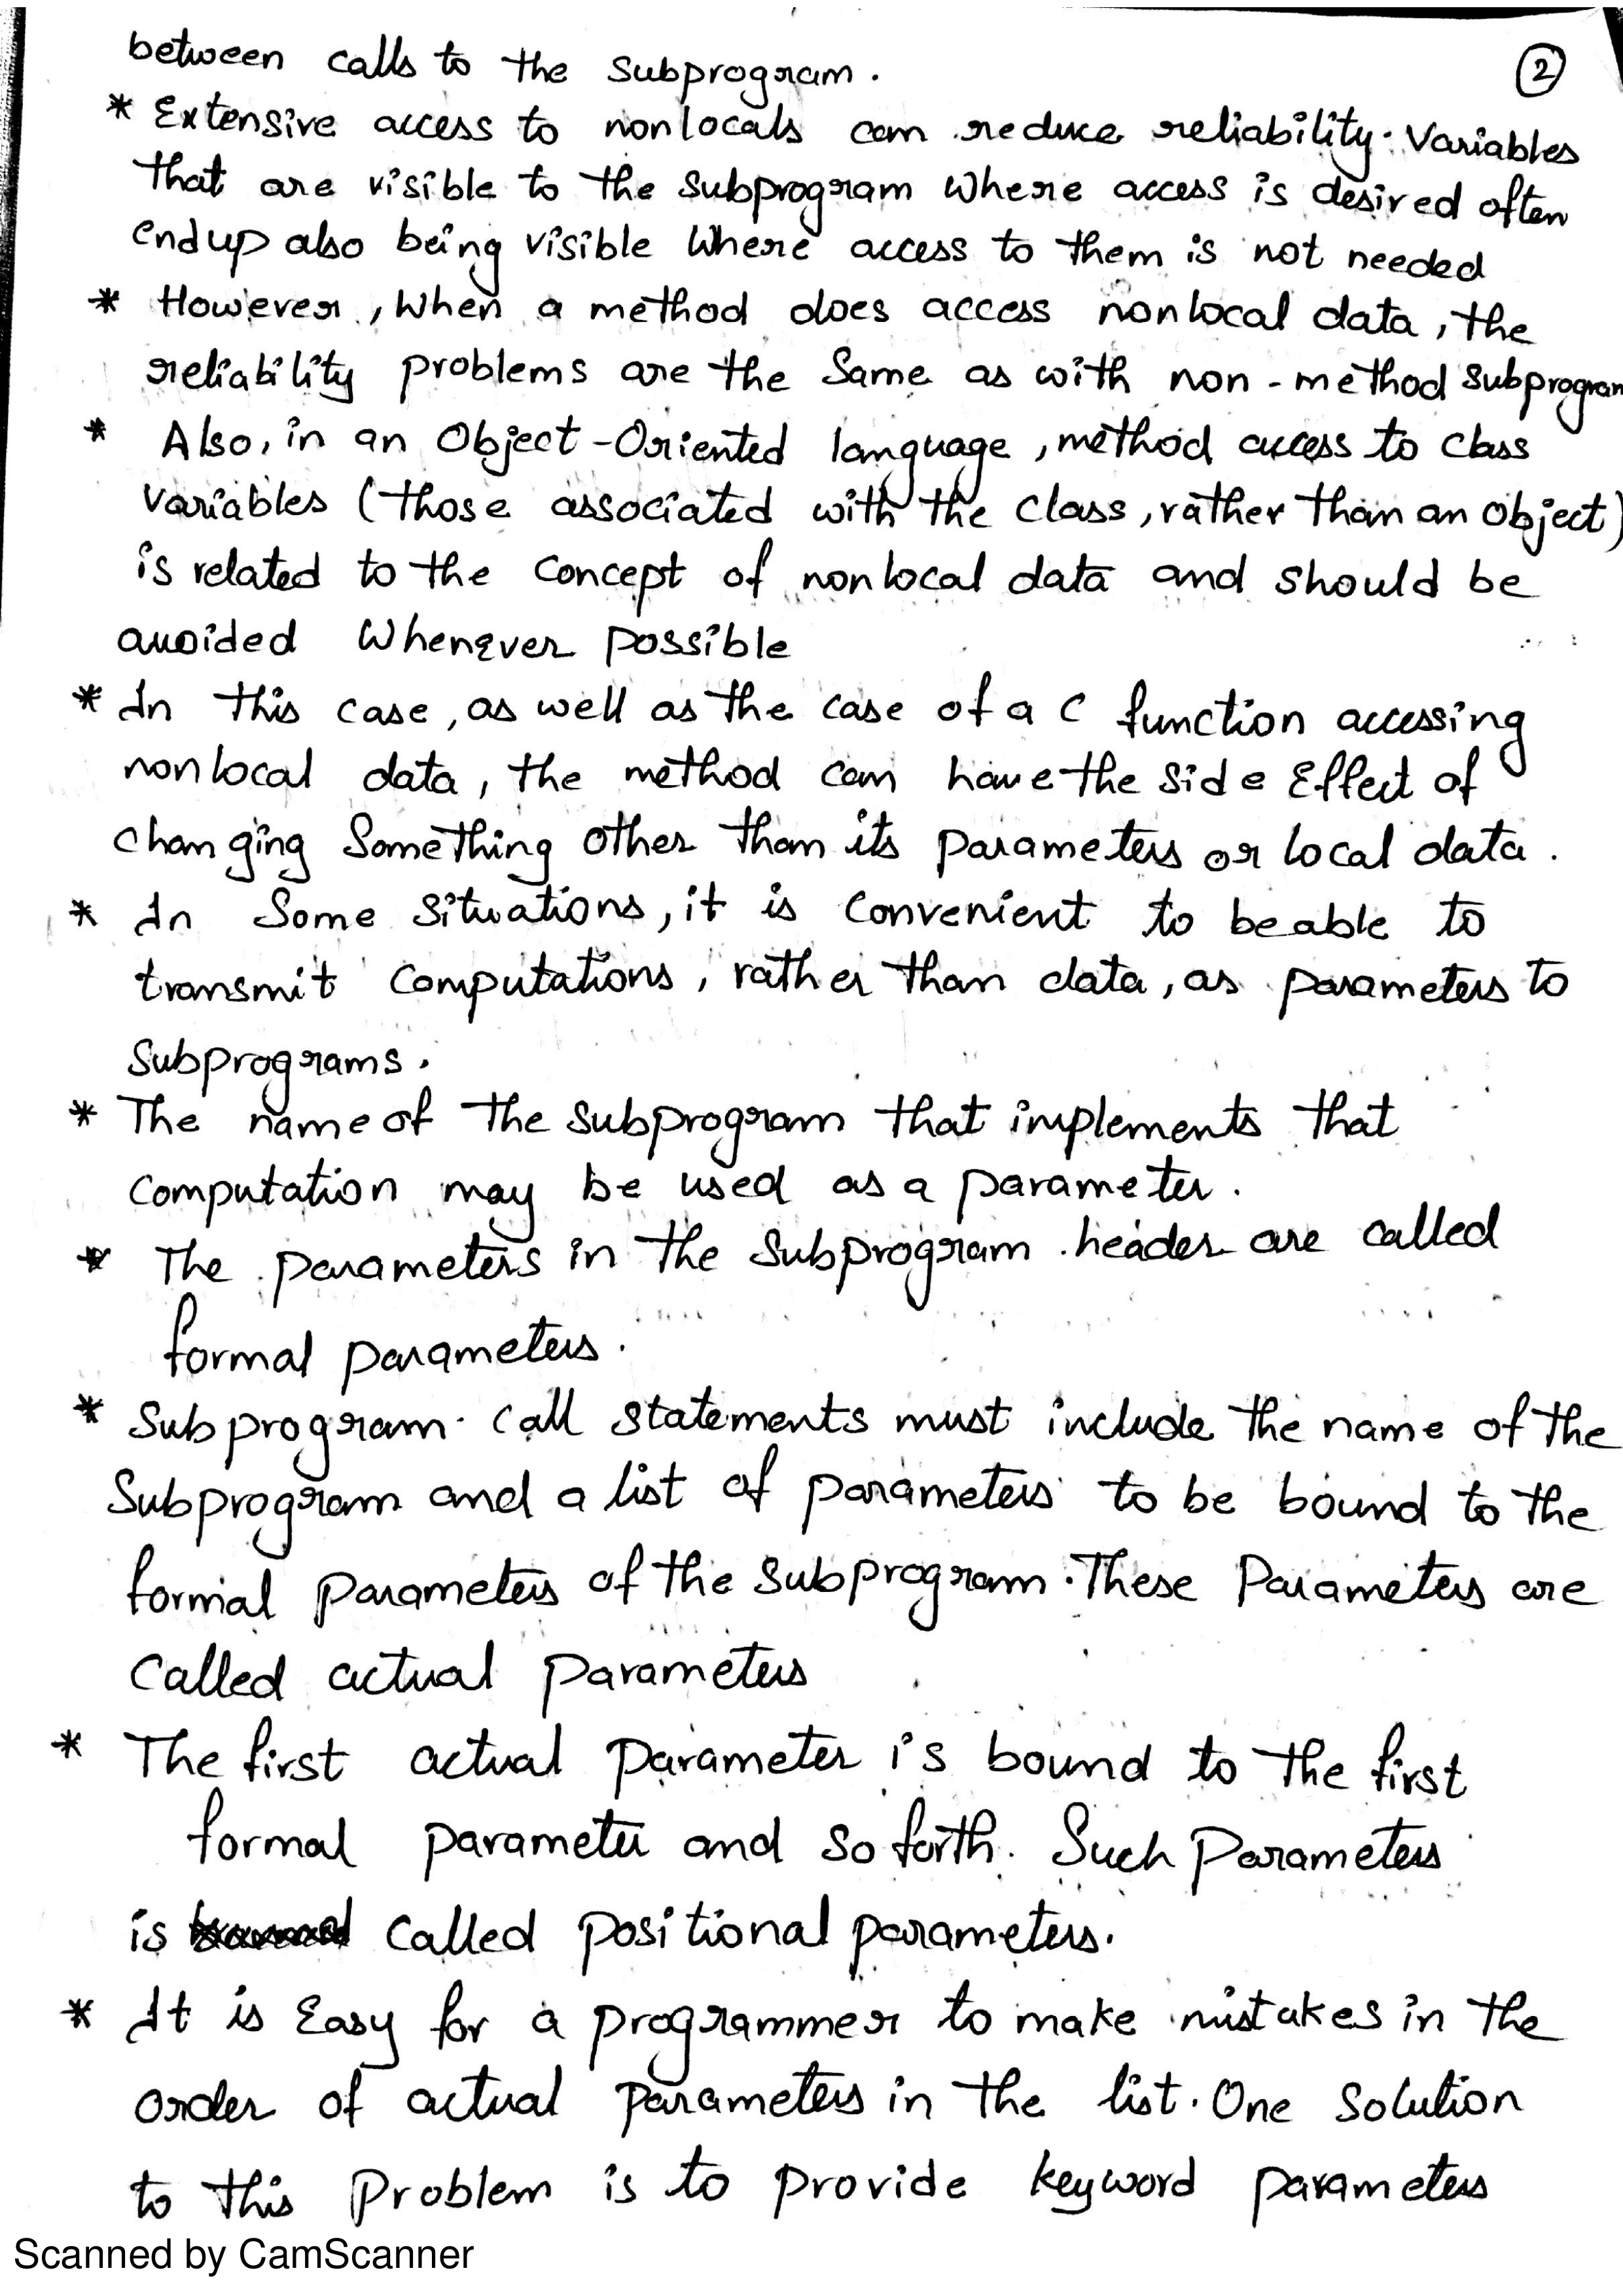 2
between calls to the subprogram.
* Extensive access to nonlocals can reduce reliability. Variables
that are visible to the subprogram where access is desired often
end up also being visible where access to them is not needed
* However, when a method does access nonlocal data, the
reliability problems are the same as with non-method subprogram
* Also, in an Object-Oriented language, method access to class
variables (those associated with the class, rather than an object)
is related to the concept of nonlocal data and should be
avoided whenever possible
* In this case, as well as the case of a C function accessing
nonlocal data, the method can have the side Effect of
changing something other than its parameters or local data.
* In some situations, it is convenient to be able to
transmit computations, rather than data, as parameters to
subprograms.
* The name of the subprogram that implements that
computation may be used as a parameter.
* The parameters in the subprogram header are called
formal parameters.
* Subprogram call statements must include the name of the
subprogram and a list of parameters to be bound to the
formal parameters of the subprogram. These Parameters are
called actual parameters
* The first actual parameter is bound to the first
formal parameter and so forth. Such parameters
is called positional parameters.
* It is Easy for a programmer to make mistakes in the
order of actual parameters in the list. One solution
to this problem is to provide keyword parameters
Scanned by CamScanner